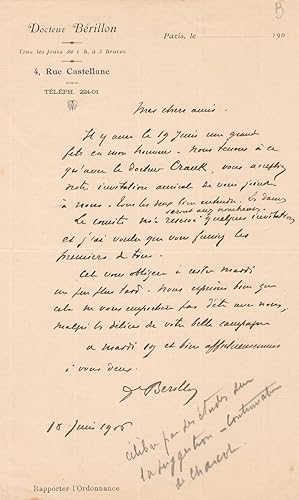 B
Docteur Bérillon
Tous les jours de 1 h. à 3 heures
4, Rue Castellane
TÉLÉPH. 224-01
Paris, le 190
Mes chers amis.
Il y aura le 19 Juin une grant
fete en mon honneur. Nous tenons à ce
qu'avec le docteur Crauk, vous acceptiez
notre invitation amicale de vous joindre
à nous. Tous les deux bien entendu. Les dames
seront aux nombreuses.
Le comité m'a reservé quelques invitations
et j'ai voulu que vous fussiez les
premiers de tous.
Cela vous oblige à rester mardi
un peu plus tard. Nous esperons bien que
cela ne vous empechera pas d'être avec nous,
malgré les délices de votre belle campagne
a mardi 19 et bien affectueusement
à vous deux.
Dr Berillon
18 Juin 1906
célèbre par ses études sur
la suggestion - continuateur
de Charcot
Rapporter l'Ordonnance